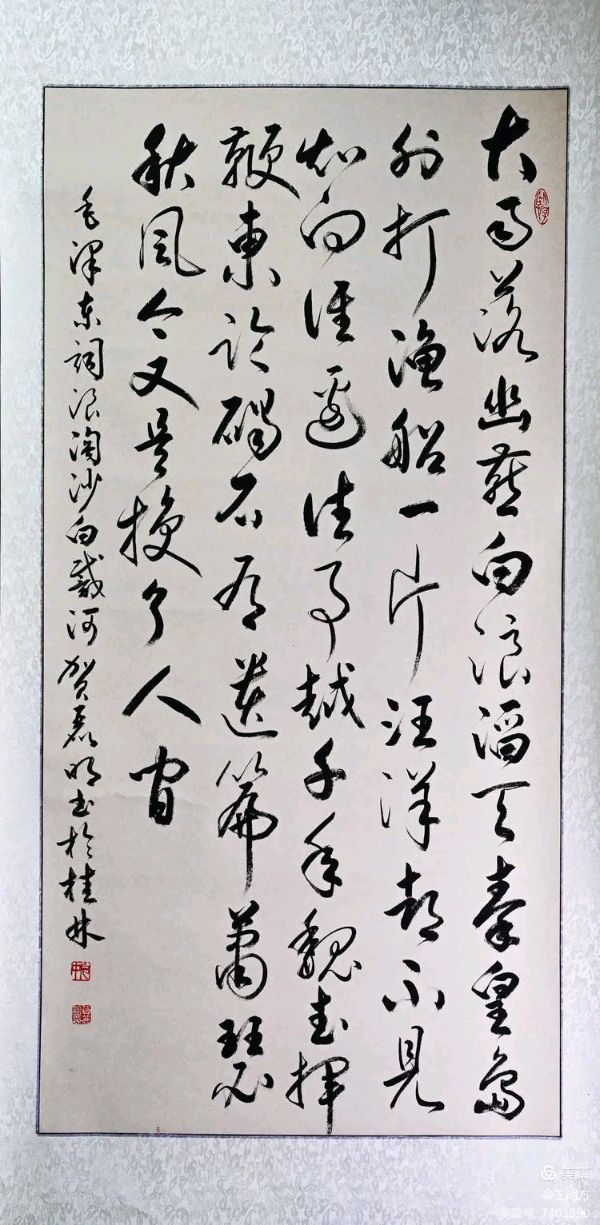 大雨落幽燕白浪滔天秦皇岛
外打渔船一片汪洋都不见
知向谁边往事越千年魏武挥
鞭東临碣石有遗篇萧瑟
秋风今又是换了人间
毛泽东词浪淘沙白戴河贺磊明书於桂林
美篇
@王超方
美篇号 7403890